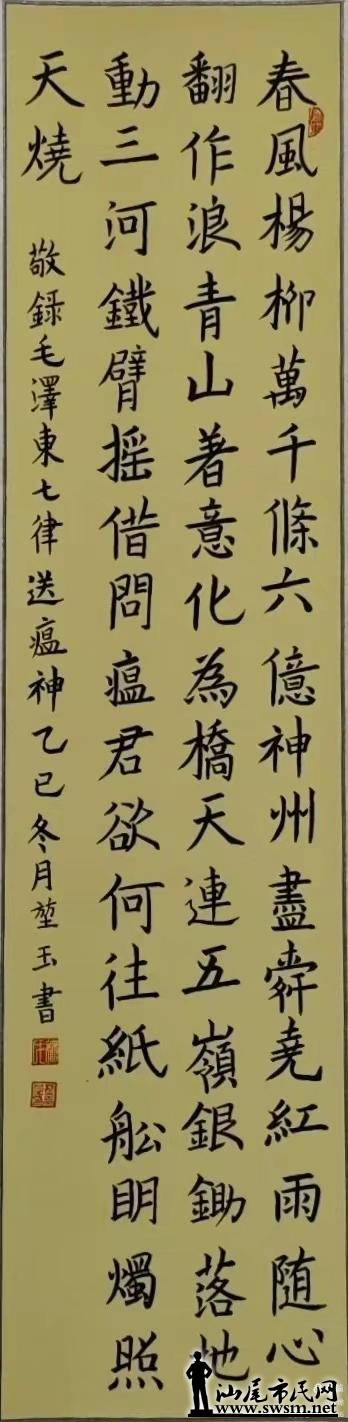 春風楊柳萬千條六億神州盡舜堯紅雨随心
翻作浪青山着意化為橋天連五嶺銀鋤落地
動三河鐵臂摇借問瘟君欲何往紙舩明燭照
天燒
敬録毛澤東七律送瘟神乙巳冬月堃玉書
汕尾市民网
www.swsm.net